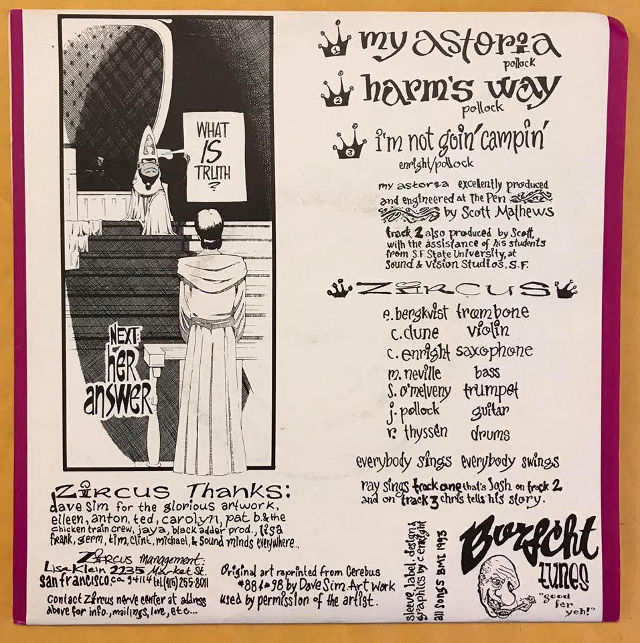 WHAT
IS
TRUTH
?
NEXT:
her
answer
1 my astoria
pollock
2 harm's way
pollock
3 i'm not goin' campin'
enright/pollock
my astoria excellently produced
and engineered at The Pen
by Scott Mathews
track 2 also produced by Scott,
with the assistance of his students
from S.F. State University, at
Sound & Vision Studios, S.F.
Zircus
e. bergkvist trombone
c. dune violin
c. enright saxophone
m. neville bass
s. o'melveny trumpet
j. pollock guitar
r. thyssen drums
everybody sings everybody swings
ray sings track one that's Josh on track 2
and on track 3 chris tells his story.
Zircus Thanks:
dave Sim for the glorious artwork,
eileen, anton, ted, carolyn, pat b. & the
chicken train crew, jaya, black adder prod., lisa
frank, germ, tim, clint, michael, & sound minds everywhere..
Zircus management:
Lisa Klein 2235 Market St.
San francisco, ca 94114 tel (415) 255-8011
Contact Zircus nerve center at address
above for info., mailings, love, etc...
Original art reprinted from Cerebus
#88 & #98 by Dave Sim. Art Work
used by permission of the artist.
sleeve, label, design &
graphics by c. enright
all songs BMI 1993
Borscht
tunes
"good
fer
yeh!"